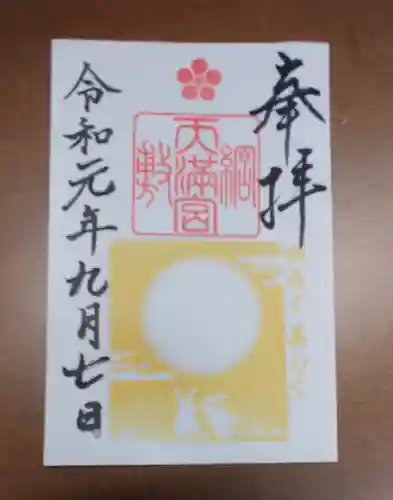 奉拝
綱敷天満宮
令和元年九月七日